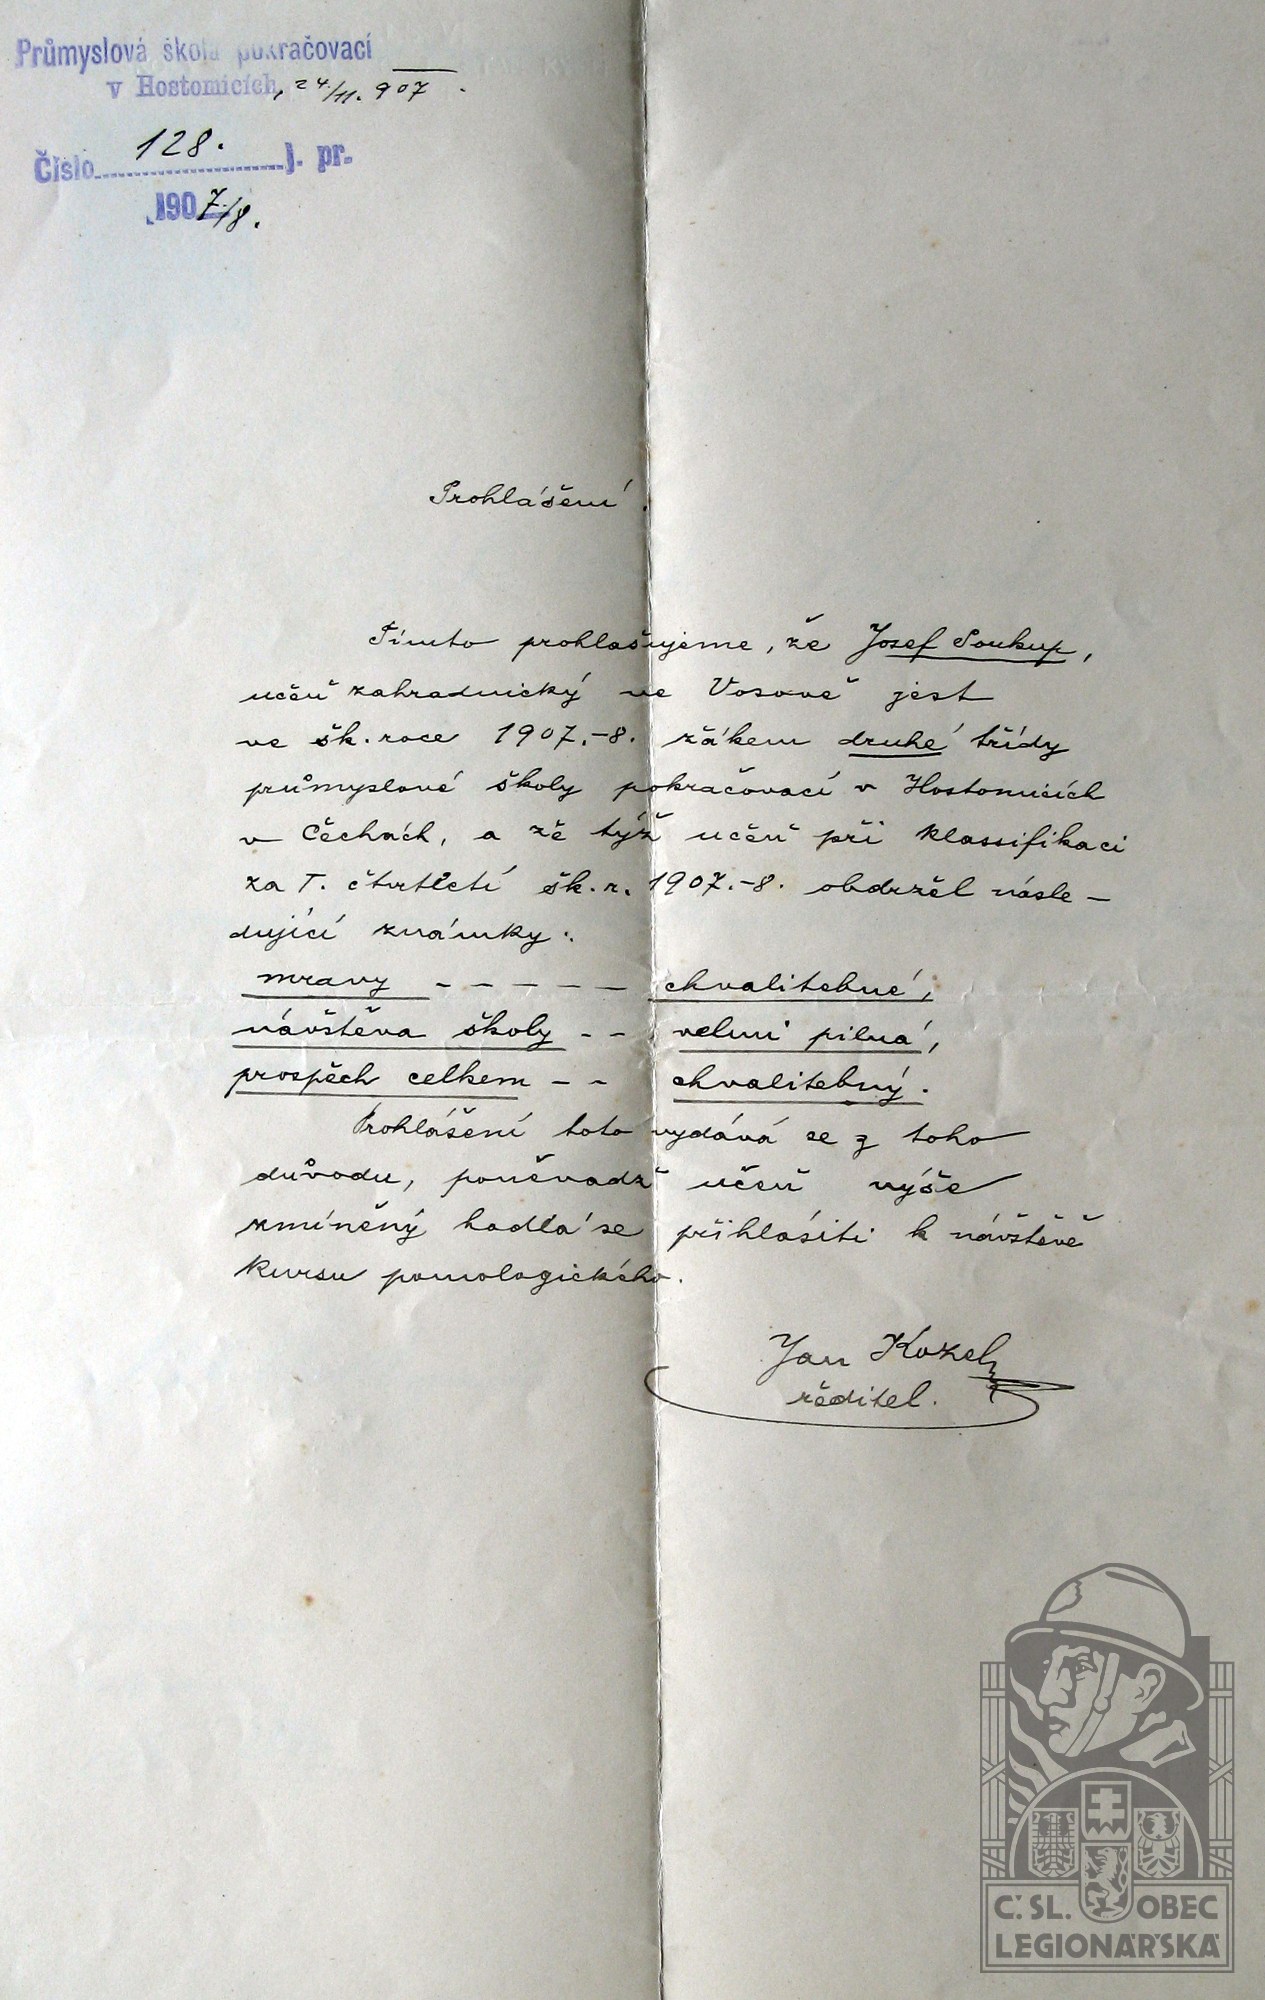 Průmyslová škola pokračovací
v Hostomicích, 24/11. 907.
Číslo 128. j. pr.
1907/8.
Prohlášení.
Tímto prohlašujeme, že Josef Soukup,
učeň zahradnický ve Vosově jest
ve šk. roce 1907.-8. žákem druhé třídy
průmyslové školy pokračovací v Hostomicích
v Čechách, a že týž učeň při klassifikaci
za I. čtvrtletí šk. r. 1907.-8. obdržel násle-
dující známky:
mravy - - - - - chvalitebné,
návštěva školy - - velmi pilná,
prospěch celkem - - chvalitebný.
Prohlášení toto vydává se z toho
důvodu, poněvadž učeň výše
zmíněný hodlá se přihlásiti k návštěvě
kursu pomologického.
Jan Kozel
ředitel.
Č. SL. OBEC
LEGIONÁŘSKÁ